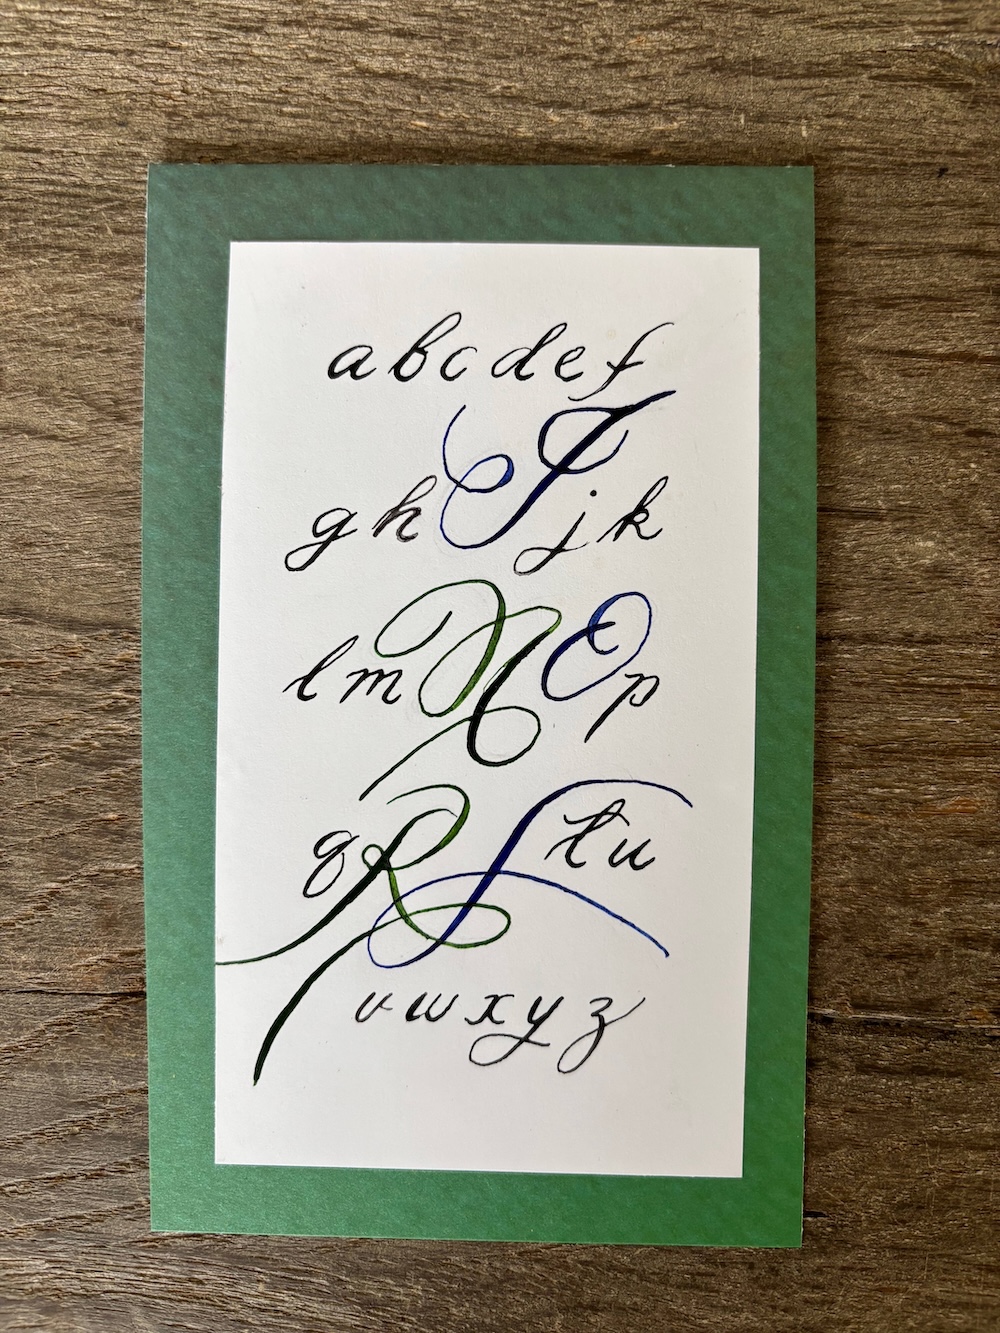 abcdef
ghIjk
lmNOp
qRStu
vwxyz